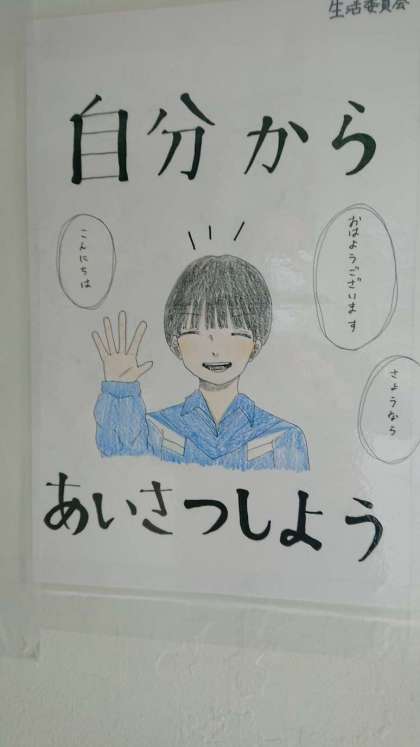 生活委員会
自分から
おはようございます
こんにちは
さようなら
あいさつしよう